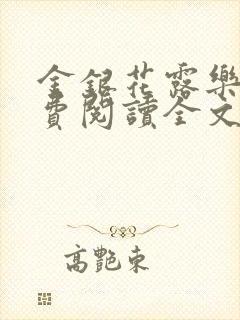 金銀花露樂
費閱讀全文
高艷東